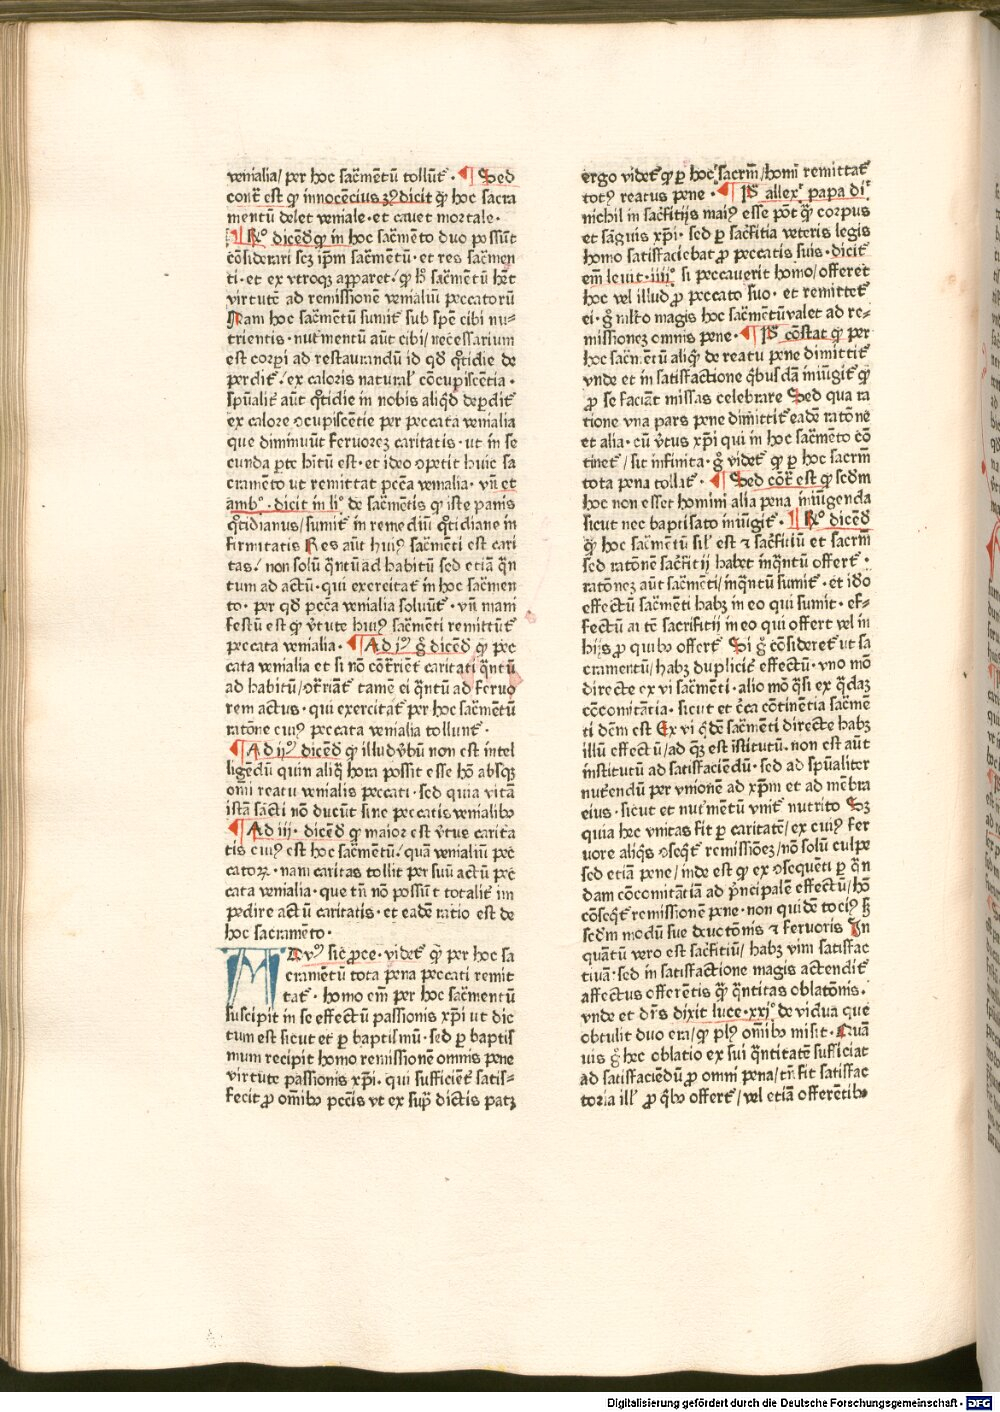 venialia/ per hoc sac̄mentū tollūt᷑ · ¶ Sed
cont̄ est ꝙ innocēcius ꝫꝰ dicit ꝙ̄ hoc sacra
mentū delet veniale · et cauet mortale ·
¶ Rº dicēdꝙ in hoc sac̄mēto duo possūt
cōsiderari scꝫ ip̄m sac̄mētū · et res sac̄men
ti · et ex vtroqꝫ apparet/ ꝙ h̄ sac̄mētū hēt
virtutē ad remissionē venialiū peccatorū
Nam hoc sac̄mētū sumit᷑ sub spē cibi nu⸗
trientis · nut̄mentū aūt cibi/ necessarium
est corpi ad restaurandū id qd̄ q̄tidie de
perdit᷑/ ex caloris natural̓ cōcupiscētia ·
sp̄ualit᷑ aūt q̄tidie in nobis aliqd̄ deperdit᷑
ex calore ↄcupiscētie per peccata venialia
que diminuūt feruorez caritatis · ut in se
cunda ꝑte h̄itū est · et ideo ↄpetit huic sa
cramēto ut remittat pcc̄a venialia · vn̄ et
ambº · dicit in liº de sac̄mētis ꝙ iste panis
q̄tidianus/ sumit᷑ in remediū q̄tidiane in
firmitatis Res aūt huiꝰ sac̄mēti est cari
tas/ non solū q̄ntū ad habitū sed etiā q̄n
tum ad actū · qui exercitat᷑ in hoc sac̄men
to · per qd̄ pcc̄a venialia soluūt᷑ · vn̄ mani
festū est ꝙ v̄tute huiꝰ sac̄mēti remittūt᷑
peccata venialia · ¶ Ad jº g̊ dicēd ꝙ pec
cata venialia et si nō cōt̄riēt᷑ caritati q̄ntū
ad habitū/ ↄt̄riāt᷑ tamē ei q̄ntū ad feruo
rem actus · qui exercitat᷑ per hoc sac̄mētū
ratōne cuiꝰ peccata venialia tollunt᷑ ·
¶ Ad ijº dicēd ꝙ illud v̄bū non est intel
ligēdū quin aliq̄ hora possit esse hō absqꝫ
om̄i reatu venialis peccati · sed quia vitā
istā sācti nō ducūt sine peccatis venialibꝰ
¶ Ad iij · dicēd ꝙ maior est v̄tus carita
tis cuiꝰ est hoc sac̄mētū/ quā venialiū pec
catoꝝ · nam caritas tollit per suū actū pec
cata venialia · que tn̄ nō possūt totalit᷑ im
pedire actū caritatis · et eadē ratio est de
hoc sacramēto ·
Ad vº sic̄ ꝓce · videt᷑ ꝙ̄ per hoc sa
cramētū tota pena peccati remit
tat᷑ · homo em̄ per hoc sac̄mentū
suscipit in se effectū passionis xp̄i ut dic
tum est sicut et ꝑ baptismū · sed ꝑ baptis
mum recipit homo remissionē omnis pene
virtute passionis xp̄i · qui sufficiēt᷑ satis⸗
fecit ꝓ om̄ibꝰ pcc̄is vt ex sup̄ dictis patꝫ
ergo videt᷑ ꝙ ꝑ hoc sacrm̄/ homī remittat᷑
totꝰ reatus pene · ¶ Pº allexʳ papa diᵗ
nichil in sac̄fitijs maiꝰ esse pōt ꝙ̄ corpus
et sāguis xp̄i · sed ꝑ sac̄fitia veteris legis
homo satisfaciebat ꝓ peccatis suis · dicit᷑
em̄ leuit · iiijº si peccauerit homo/ offeret
hoc vel illud ꝓ peccato suo · et remittet᷑
ei · g̊ ml̄to magis hoc sac̄mētū valet ad re⸗
missionez omnis pene · ¶ Pº cōstat ꝙ per
hoc sac̄mētū aliqͥ de reatu pene dimittit᷑
vnde et in satisfactione q̄busdā iniūgit᷑ ꝙ
ꝓ se faciāt missas celebrare Sed qua ra
tione vna pars pene dimittit᷑ eadē ratōne
et alia · cū v̄tus xp̄i qui in hoc sac̄mēto cō
tinet᷑/ sit infinita · g̊ videt᷑ ꝙ ꝑ hoc sacrm̄
tota pena tollit᷑ · ¶ Sed cōt̄ est ꝙ scdm̄
hoc non esset homini alia pena iniūgenda
sicut nec baptisato iniūgit᷑ · ¶ Rº dicēd
ꝙ̄ hoc sac̄mētū sil̓ est ⁊ sac̄fitiū et sacrm̄
sed ratōnē sac̄fitij habet inq̄ntū offert᷑ ·
ratōnez aūt sac̄mēti/ inq̄ntū sumit᷑ · et iđo
effectū sac̄mēti habꝫ in eo qui sumit · ef⸗
fectū aūtē sacrifitij in eo qui offert vel in
hijs ꝓ quibꝰ offert᷑ Si g̊ cōsideret᷑ ut sa
cramentū/ habꝫ duplicit᷑ effectū · vno mō
directe ex vi sac̄mēti · alio mō q̄si ex q̄dāꝫ
cōcomitātia · sicut et c̄ca cōtinētia sac̄mē
ti dc̄m est Ex vi q̄dē sac̄mēti directe habꝫ
illū effectū/ ad qꝫ est īstitutū · non est aūt
institutū ad satisfaciēdū · sed ad sp̄ualiter
nut̄endū per vnionē ad xp̄m et ad mēbra
eius · sicut et nut̄mētū vnit᷑ nutrito Sꝫ
quia hec vnitas fit ꝑ caritatē/ ex cuiꝰ fer
uore aliqͥs ↄseqt᷑ remissiōeꝫ/ nō solū culpe
sed etiā pene/ inde est ꝙ ex ↄsequēti ꝑ q̄n
dam cōcomitātiā ad p̄ncipalē effectū/ hō
cōseqt᷑ remissionē pene · non quidē tociꝰ sꝫ
scdm̄ modū sue deuctōnis ⁊ feruoris In
quātū vero est sac̄fitiū/ habꝫ vim satisfac
tiuā · sed in satisfactione magis actendit᷑
affectus offerētis ꝙ̄ q̄ntitas oblatōnis ·
vnde et dn̄s dixit luce · xxjº de vidua que
obtulit duo era/ ꝙ plꝰ om̄ibꝰ misit · Quā
uis g̊ hec oblatio ex sui q̄ntitatē sufficiat
ad satisfaciēdū ꝓ omni pena/ tn̄ fit satisfac
toria ill̓ ꝓ q̄bꝰ offert᷑/ vel etiā offerētibꝰ
Digitalisierung gefördert durch die Deutsche Forschungsgemeinschaft - DFG